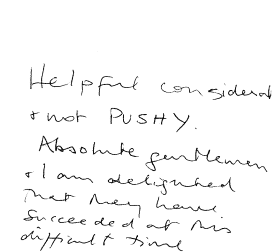 Helpful considerat
+ not PUSHY.
Absolute gentlemen
+ I am delighted
that they have
succeeded at this
difficult time